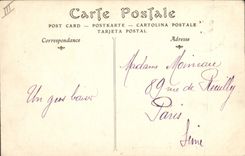 III
Carte Postale
POST CARD - POSTKARTE - CARTOLINA POSTALE
TARJETA POSTAL
Correspondance
Adresse
Un gros baiser
Madame
89 rue de Reuilly
Paris
Seine